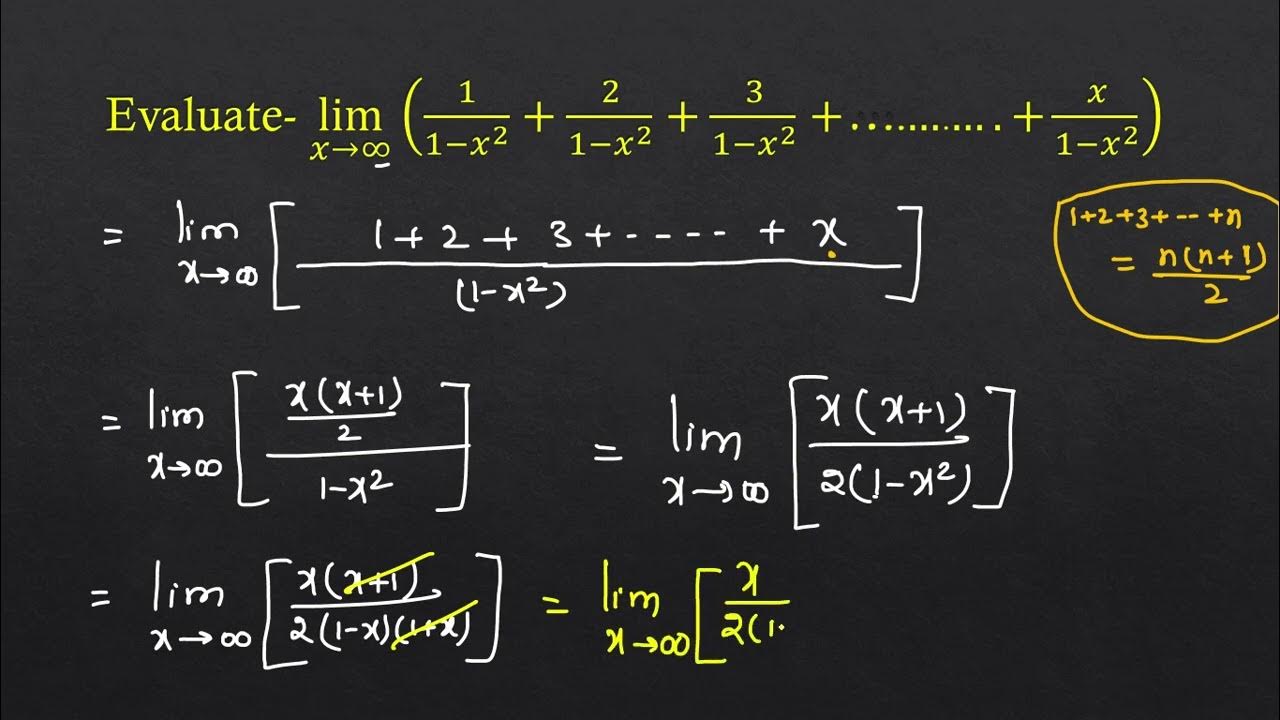 Evaluate- lim x→∞ (1/(1−x²) + 2/(1−x²) + 3/(1−x²) + ............ . + x/(1−x²))
= lim x→∞ [(1+2+3+----+x)/(1-x²)]
1+2+3+---+n
= n(n+1)/2
= lim x→∞ [(x(x+1)/2)/(1-x²)] = lim x→∞ [x(x+1)/2(1-x²)]
= lim x→∞ [x(x+1)/2(1-x)(1+x)] = lim x→∞ [x/2(1-